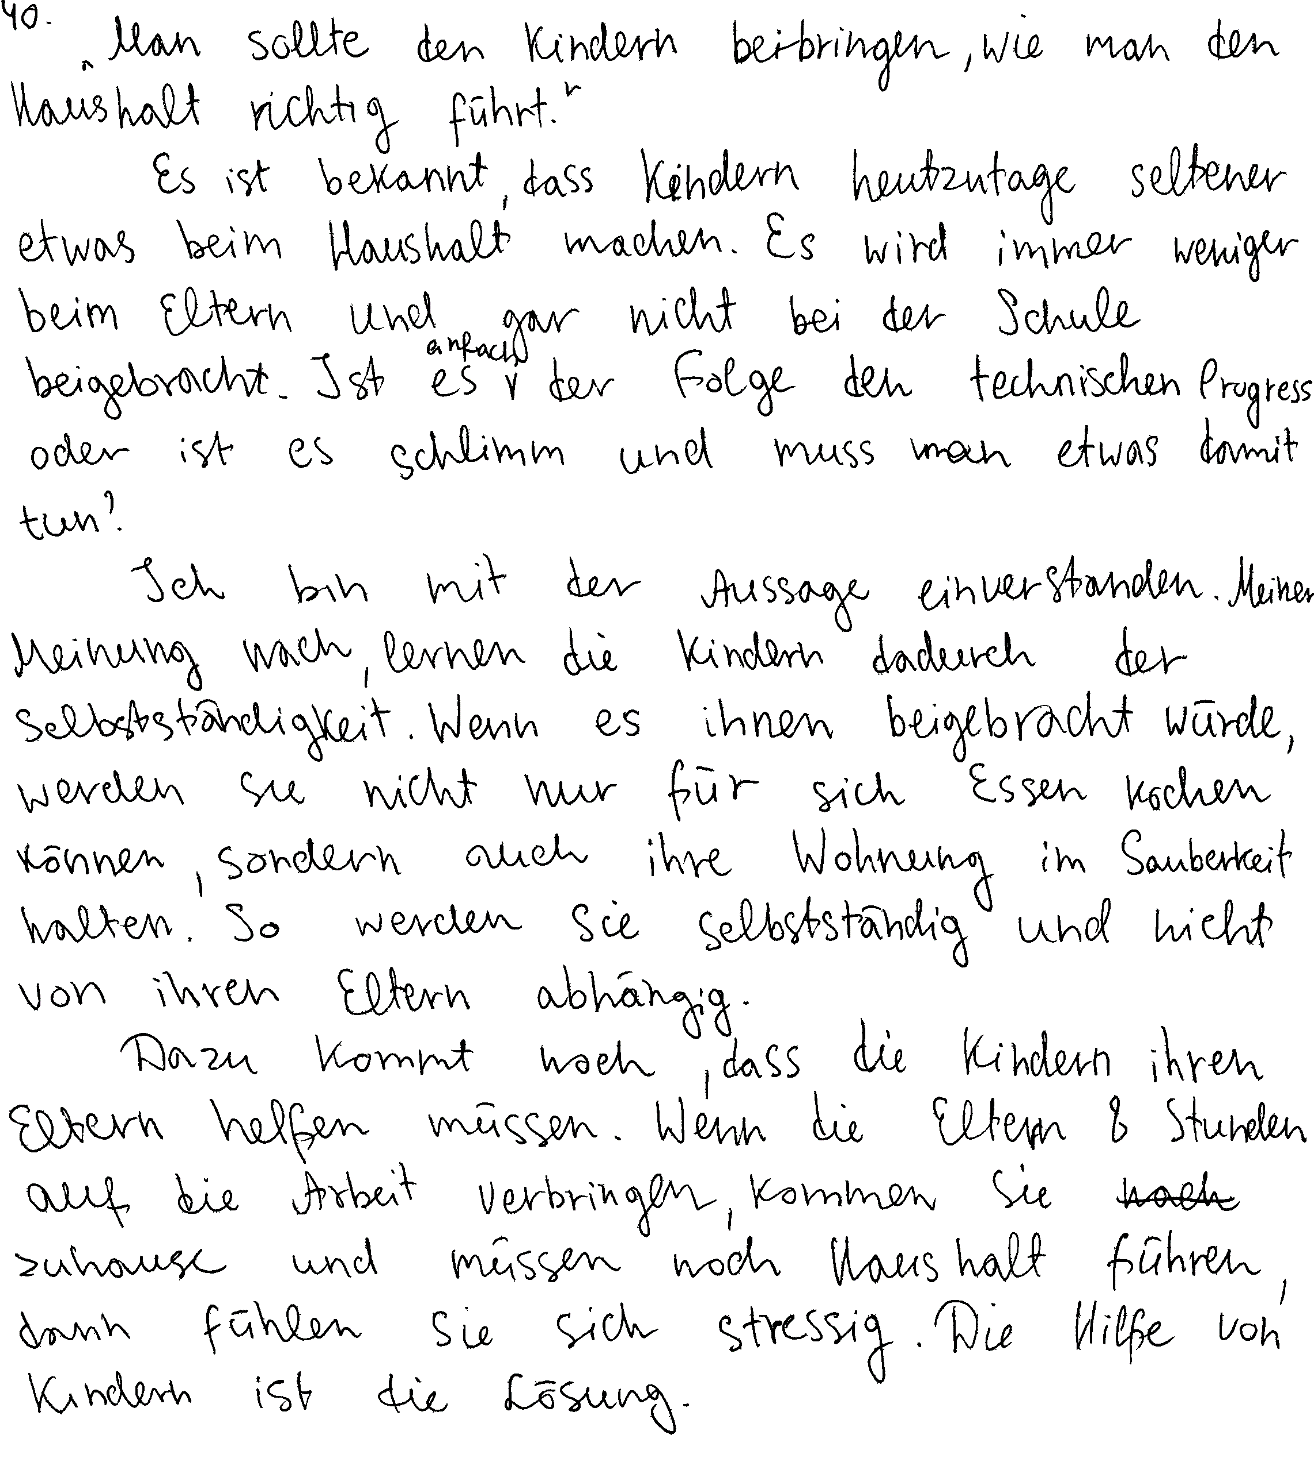 40.
„Man sollte den Kindern beibringen, wie man den
Haushalt richtig führt."
Es ist bekannt, dass Kindern heutzutage seltener
etwas beim Haushalt machen. Es wird immer weniger
beim Eltern und gar nicht bei der Schule
beigebracht. Ist es einfach der Folge den technischen Progress
oder ist es schlimm und muss man etwas damit
tun?
Ich bin mit der Aussage einverstanden. Meiner
Meinung nach, lernen die Kindern dadurch der
Selbstständigkeit. Wenn es ihnen beigebracht würde,
werden sie nicht nur für sich Essen kochen
können, sondern auch ihre Wohnung im Sauberkeit
halten. So werden sie selbstständig und nicht
von ihren Eltern abhängig.
Dazu kommt noch, dass die Kindern ihren
Eltern helfen müssen. Wenn die Eltern 8 Stunden
auf die Arbeit verbringen, kommen sie noch
zuhause und müssen noch Haushalt führen,
dann fühlen sie sich stressig. Die Hilfe von
Kindern ist die Lösung.